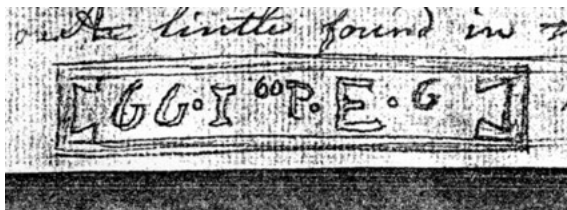 the lintle found in
GG·I 60 P. E · G